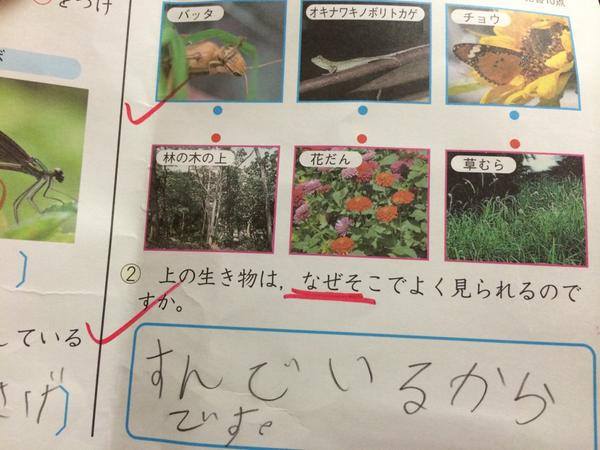 をつけ
バッタ
オキナワキノボリトカゲ
チョウ
林の木の上
花だん
草むら
② 上の生き物は，なぜそこでよく見られるので
すか。
すんでいるから
です。
している